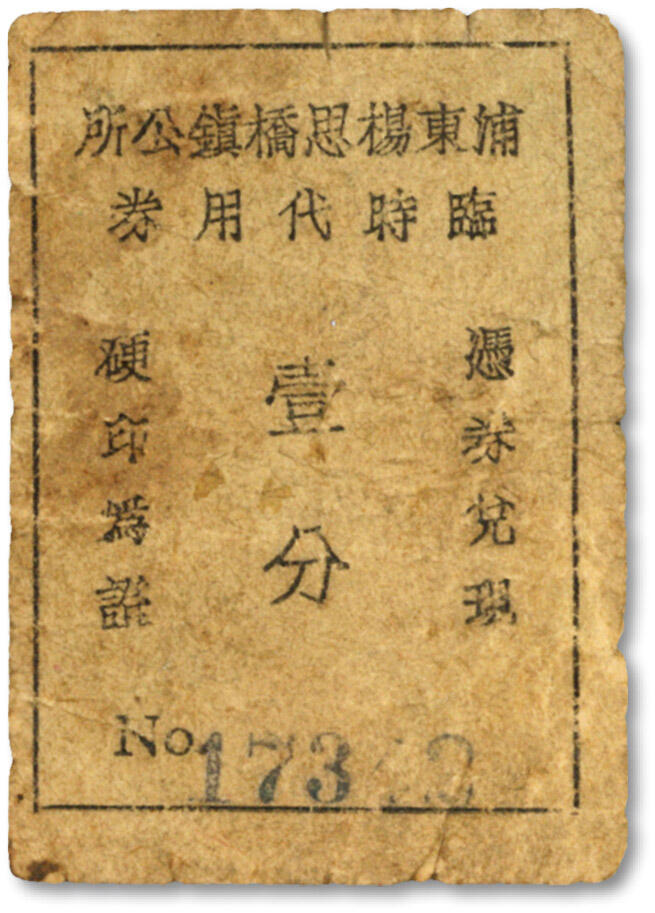 浦東楊思橋鎮公所
臨時代用券
憑券兌現
壹分
硬印爲證
No.